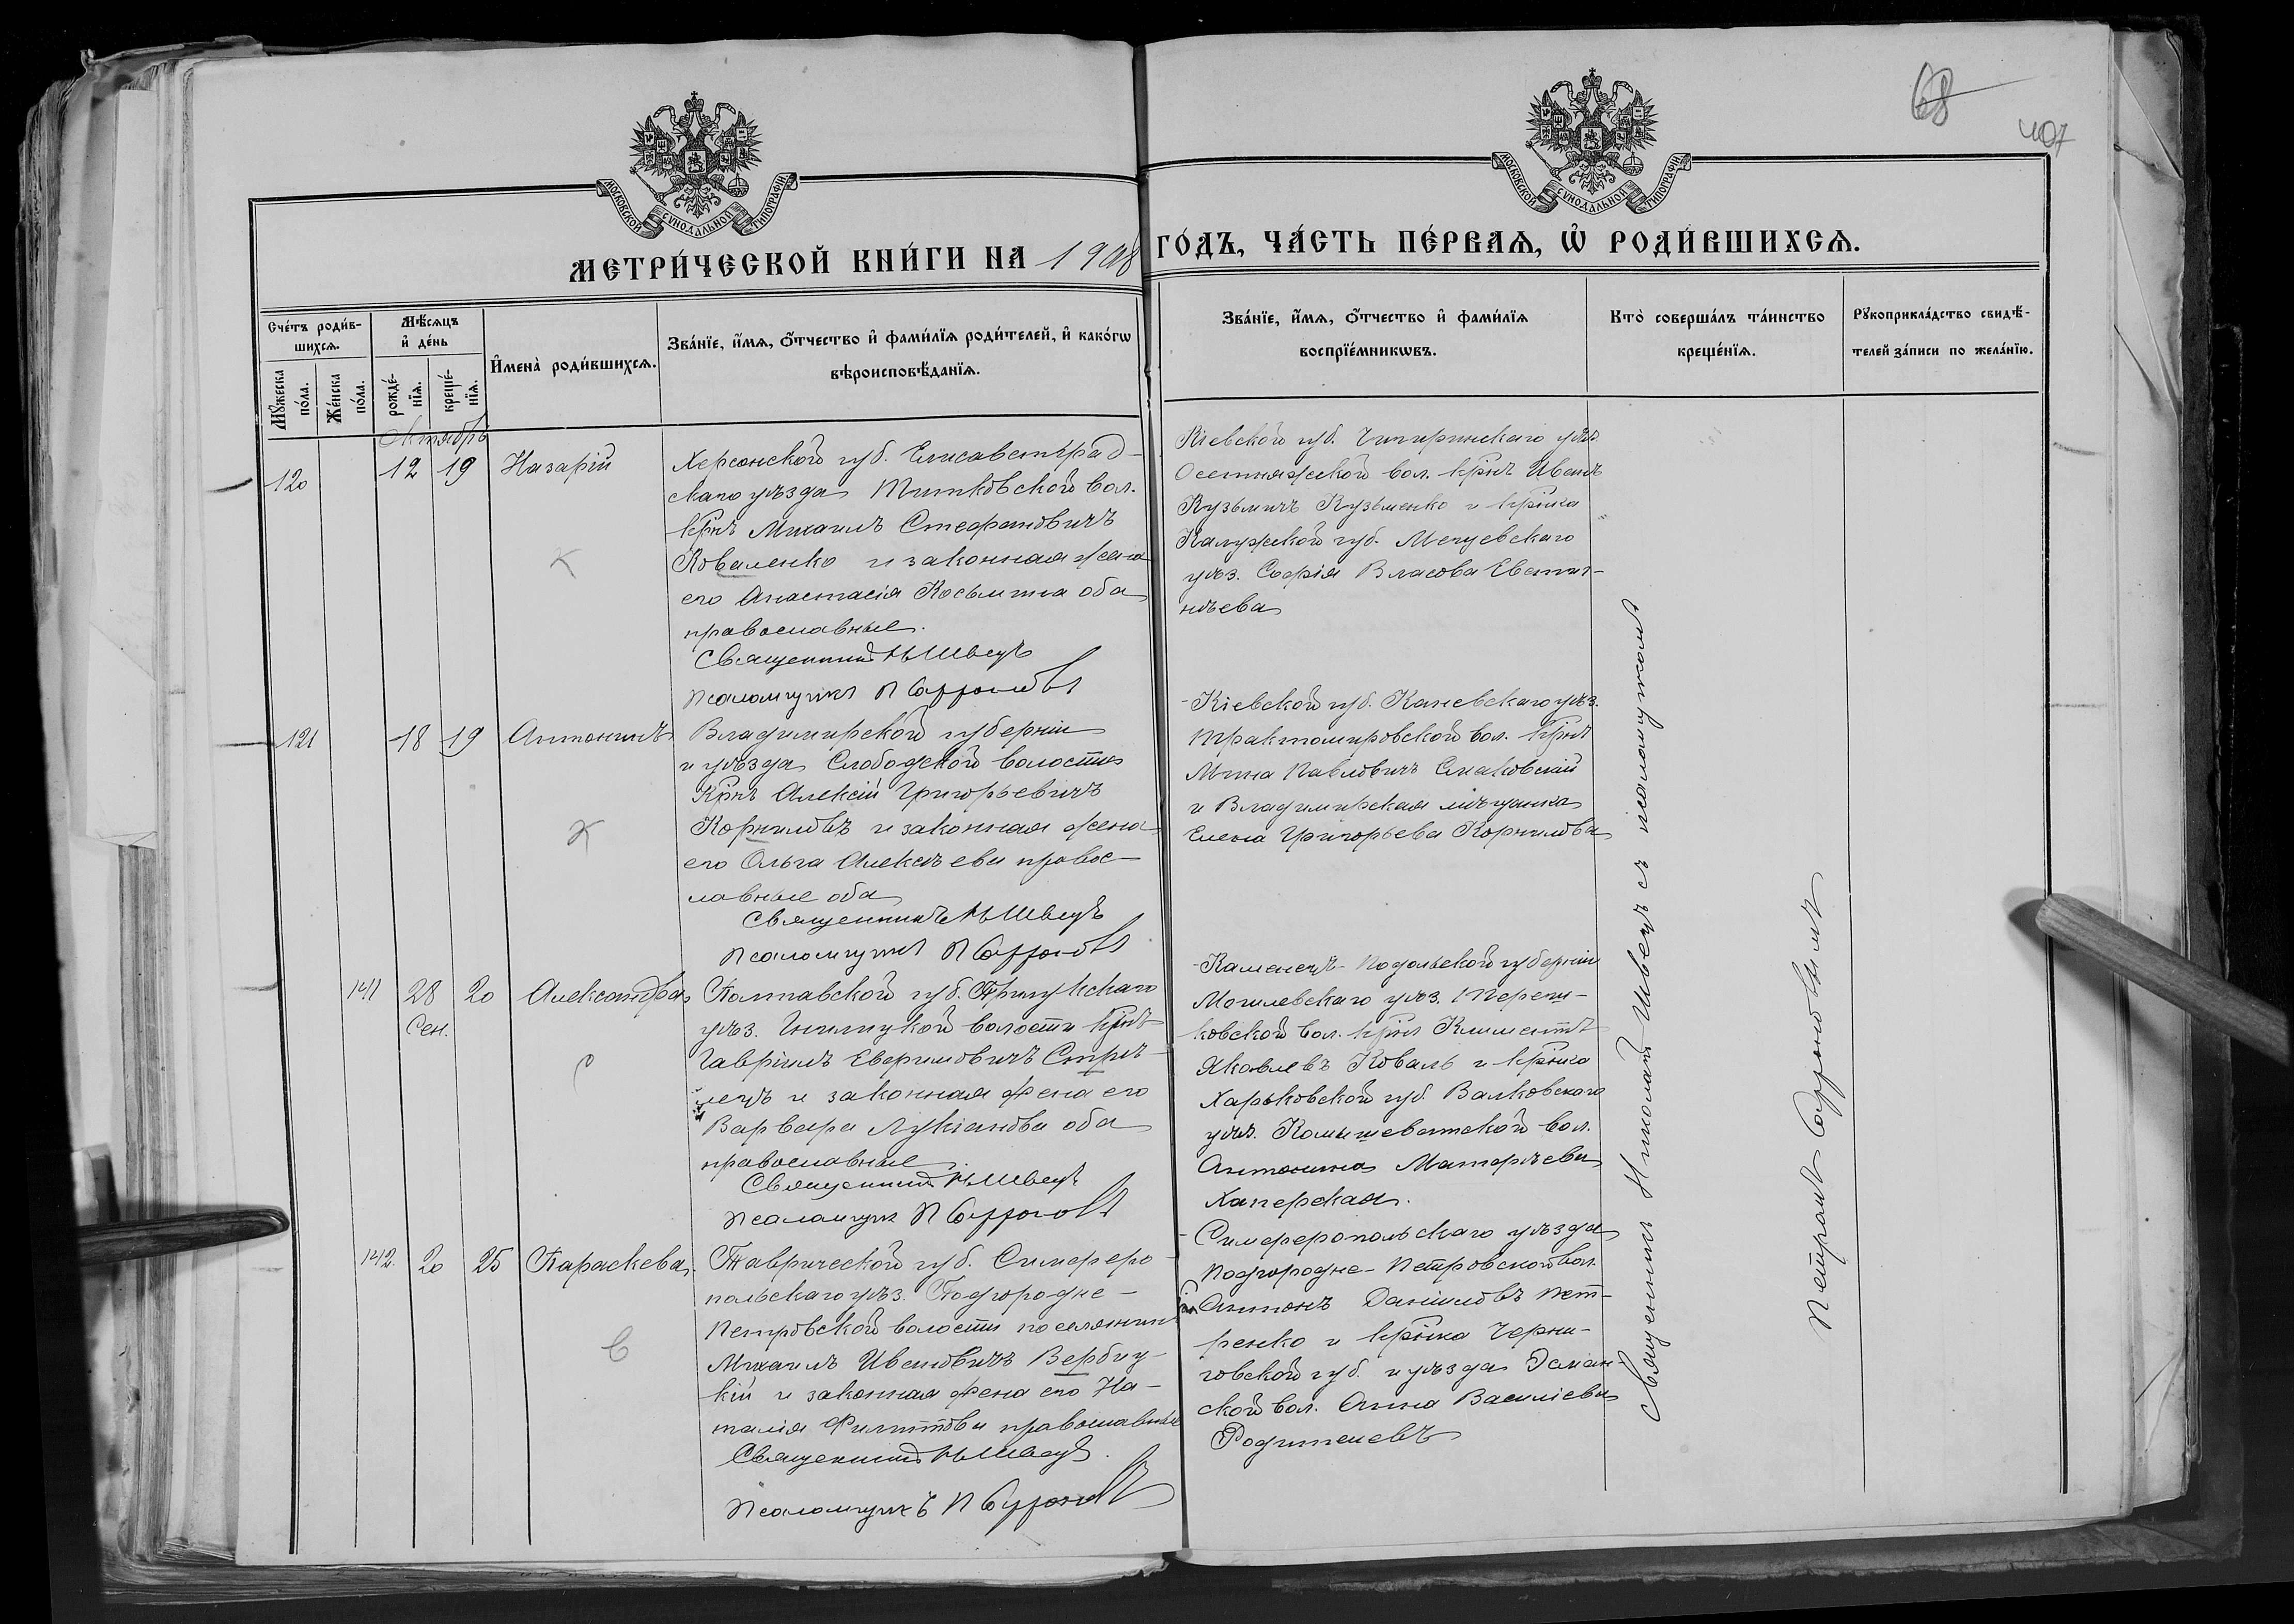 68
407
МОСКОВСКОЙ СУНОДАЛЬНОЙ ТИПОГРАФІИ
МОСКОВСКОЙ СУНОДАЛЬНОЙ ТИПОГРАФІИ
МЕТРИ́ЧЕСКОЙ КНИ́ГИ НА 1908 ГО́ДЪ, ЧА́СТЬ ПЕ́РВАѦ, Ѡ҆ РОДИ́ВШИХСѦ.
Сче́тъ роди́в-
шихсѧ.
Мꙋ́жеска по́ла.
Же́нска по́ла.
Мѣ́сѧцъ
и҆ де́нь
рожде́-
нїѧ.
креще́-
нїѧ.
И҆мена̀ роди́вшихсѧ.
Зва́нїе, и҆́мѧ, ѻ҆́тчество и҆ фами́лїѧ роди́телей, и҆ како́гѡ
вѣроисповѣ́данїѧ.
Зва́нїе, и҆́мѧ, ѻ҆́тчество и҆ фами́лїѧ
воспрїе́мникѡвъ.
Кто̀ соверша́лъ та́инство
креще́нїѧ.
Рꙋкоприкла́дство свидѣ́-
телей за́писи по жела́нїю.
Октябрь
120
12 19
Назарій
Херсонской губ. Елисаветград-
скаго уѣзда Титковской вол.
крнъ Михаилъ Стефановичъ
Коваленко и законная жена
его Анастасія Косьмина оба
православные.
Священникъ Н Швецъ
Псаломщикъ П Сафроновъ
Кіевской губ. Чигиринскаго уѣз.
Осетняжской вол. крнъ Иванъ
Кузьмичъ Кузьменко и крнка
Калужской губ. Мещевскаго
уѣз. Софія Власова Евстиг-
нѣева
121
18 19
Антонинъ
Владимирской губерніи
и уѣзда Слободской волости
крнъ Алексій Григорьевичъ
Корниловъ и законная жена
его Ольга Алексѣева правос-
лавные оба
Священникъ Н Швецъ
Псаломщикъ П Сафроновъ
Кіевской губ. Каневскаго уѣз.
Трактомировской вол. крнъ
Мина Павловичъ Смаковскій
и Владимирская мѣщанка
Елена Григорьева Корнилова
141
28 20
Сен.
Александра
Полтавской губ. Прилукскаго
уѣз. Гнилицкой волости крнъ
Гавріилъ Евфимовичъ Стрѣ-
лецъ и законная жена его
Варвара Лукіанова оба
православные
Священникъ Н Швецъ
Псаломщик П Сафроновъ
Каменецъ-Подольской губерніи
Могилевскаго уѣз.
ковской вол. крнъ Климентъ
Яковлевъ Коваль и крнка
Харьковской губ. Валковскаго
уѣз. Камышеватской вол.
Антонина Матфѣева
Хаперская.
142.
20 25
Параскева
Таврической губ. Симферо-
польскаго уѣз. Подгородне-
Петровской волости поселянинъ
Михаилъ Ивановичъ Вербиц-
кій и законная жена его На-
талія Филиппова православные
Священникъ Н Швецъ.
Псаломщикъ П Сафроновъ
Симферопольскаго уѣзда
Подгородне-Петровской вол.
Антонъ Даніиловъ Пет-
ренко и крнка Черни-
говской губ. и уѣзда
ской вол. Анна Василіева
Родителевъ
Священникъ Николай Швецъ съ псаломщикомъ
Петромъ Сафроновымъ